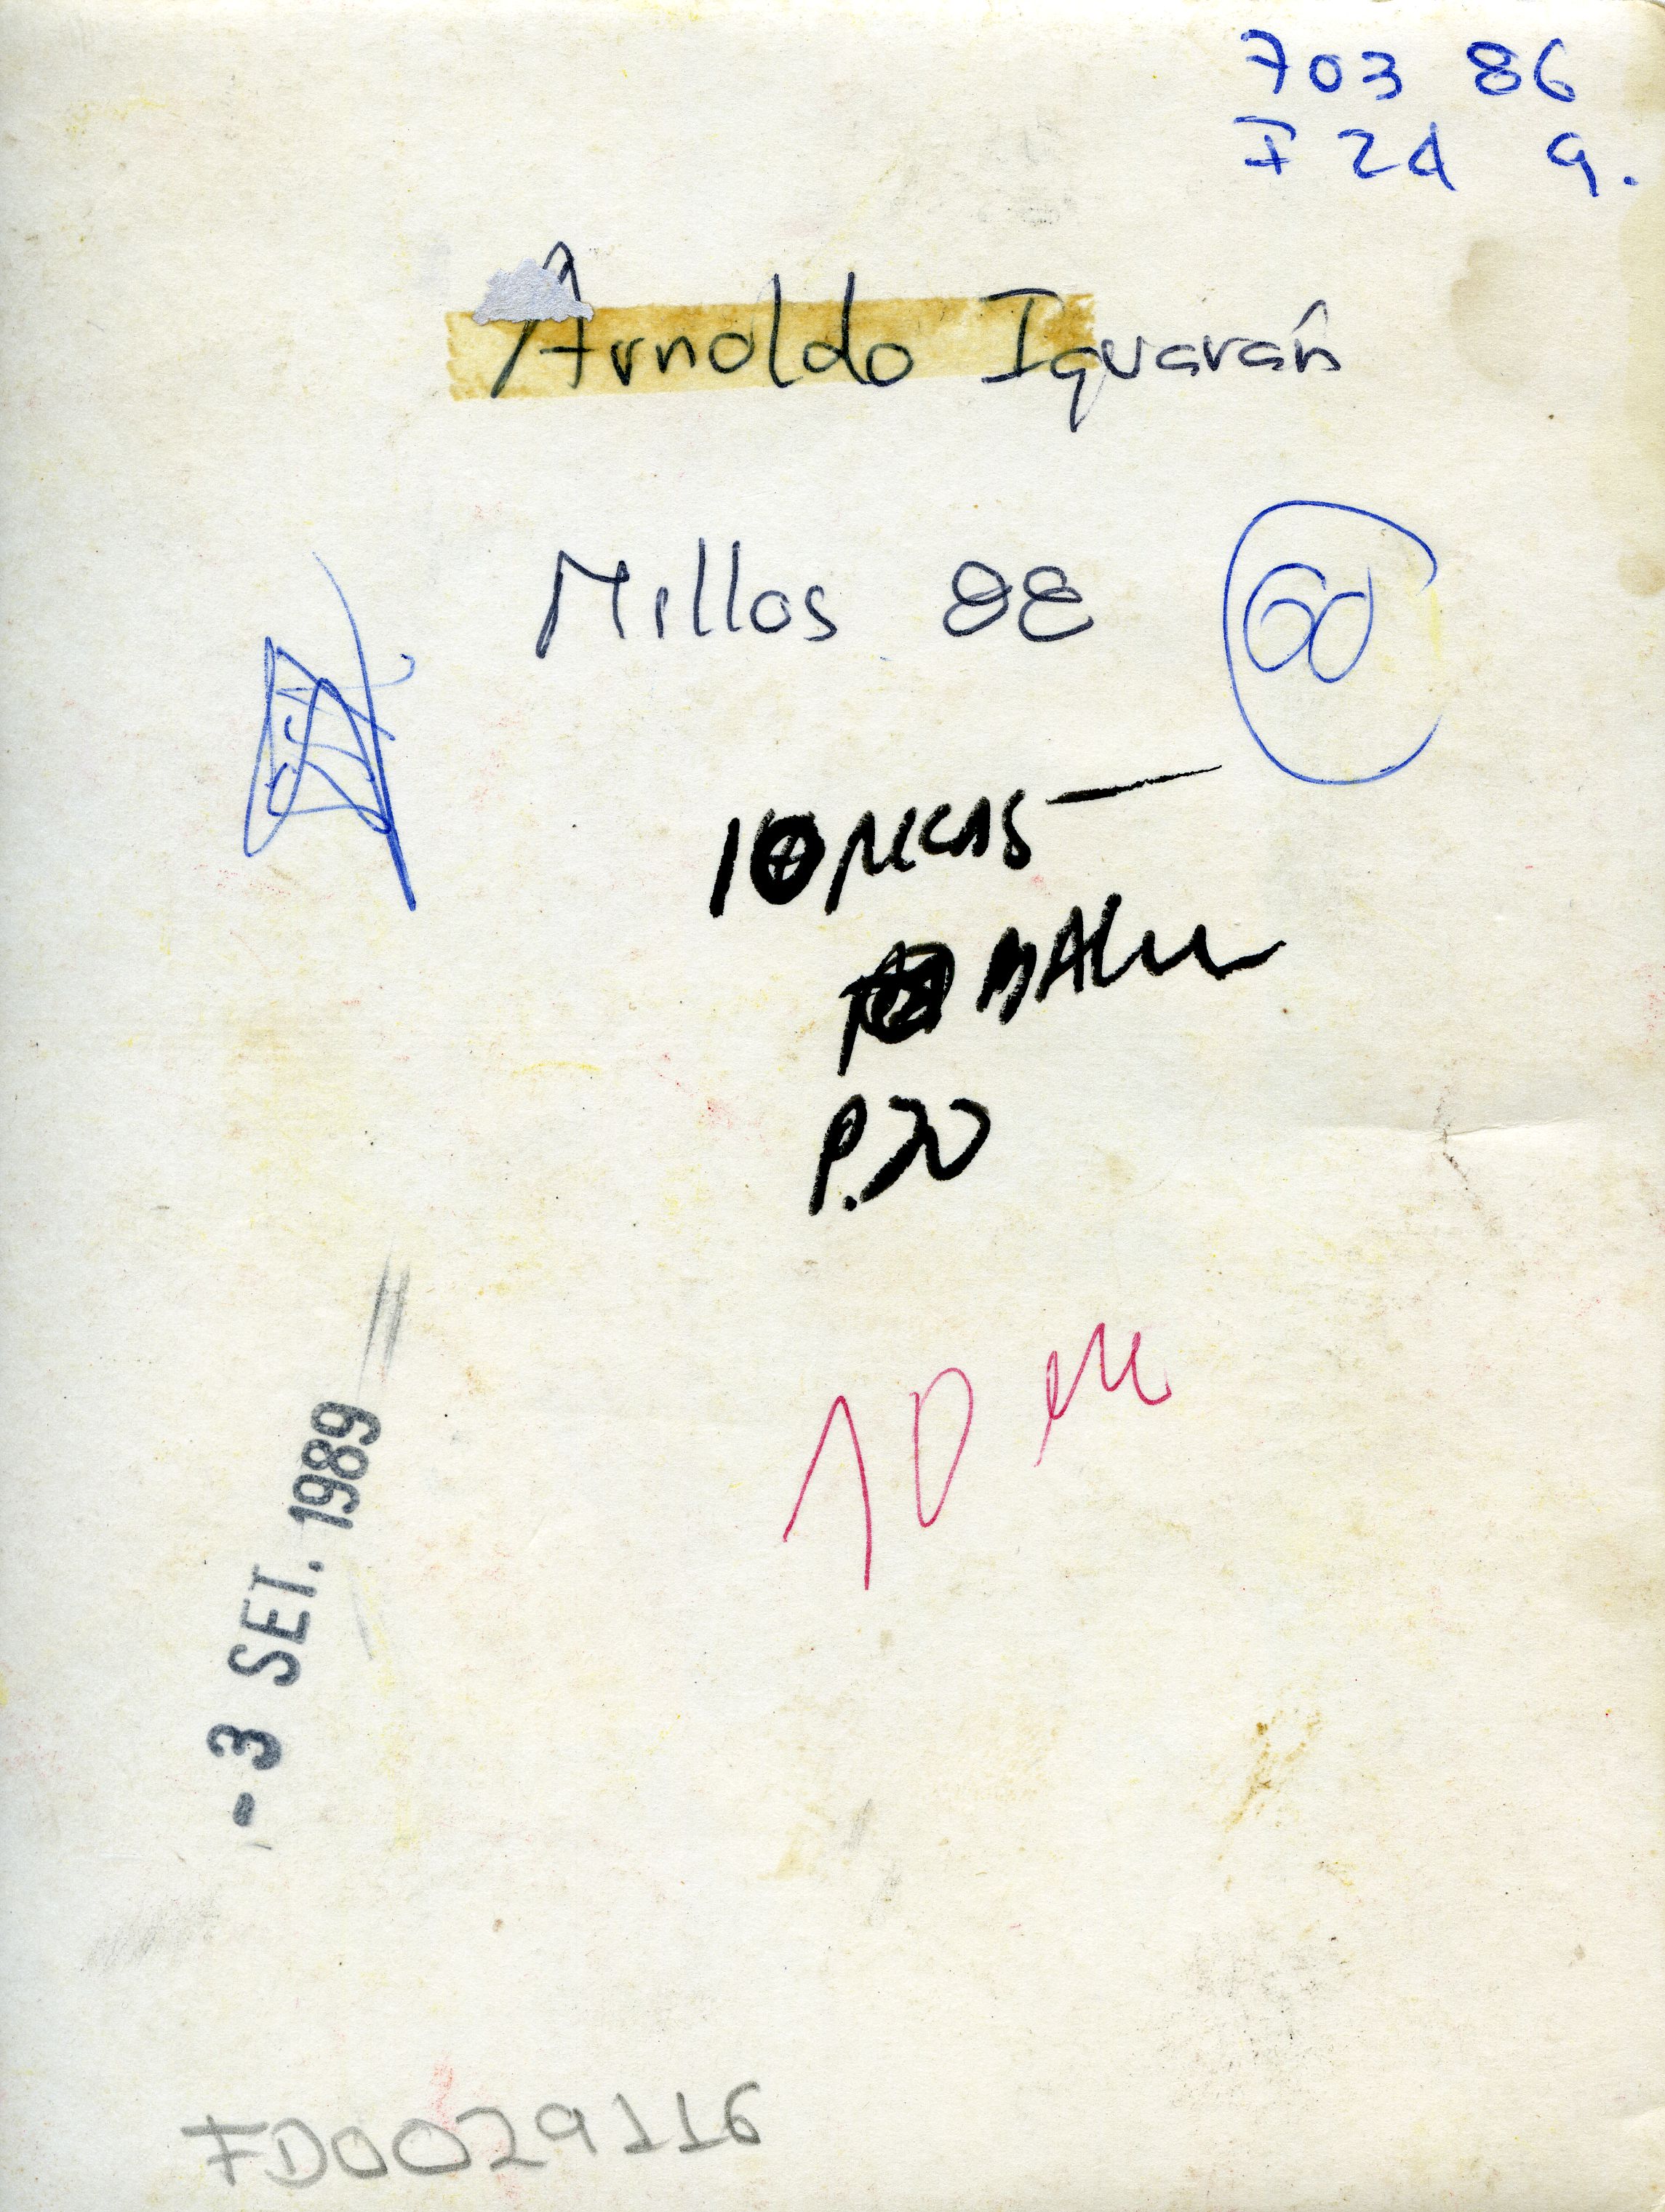 703 86
I 24 9.
Arnoldo Iguarán
Millos 88
60
10 picas
P.20
10 em
- 3 SET. 1989
FD0029116